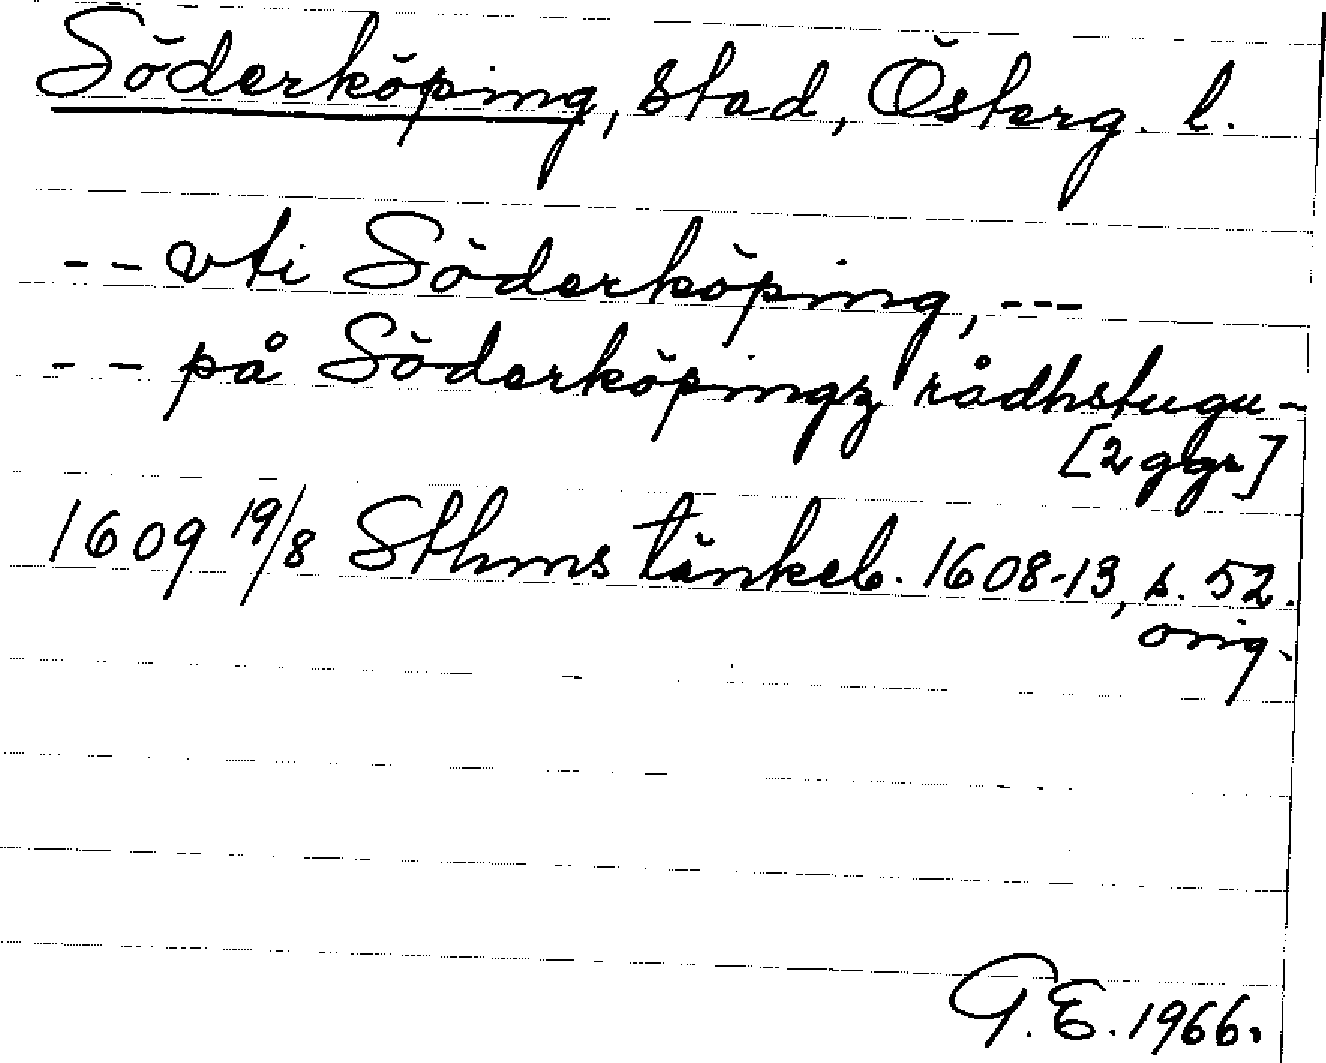 Söderköping, stad, Österg. l.
-- vti Söderköping, ---
-- på Söderköpingz rådhstugu -
[2 ggr]
1609 19/8 Sthms tänkeb. 1608-13, s. 52.
orig.
G.E. 1966.